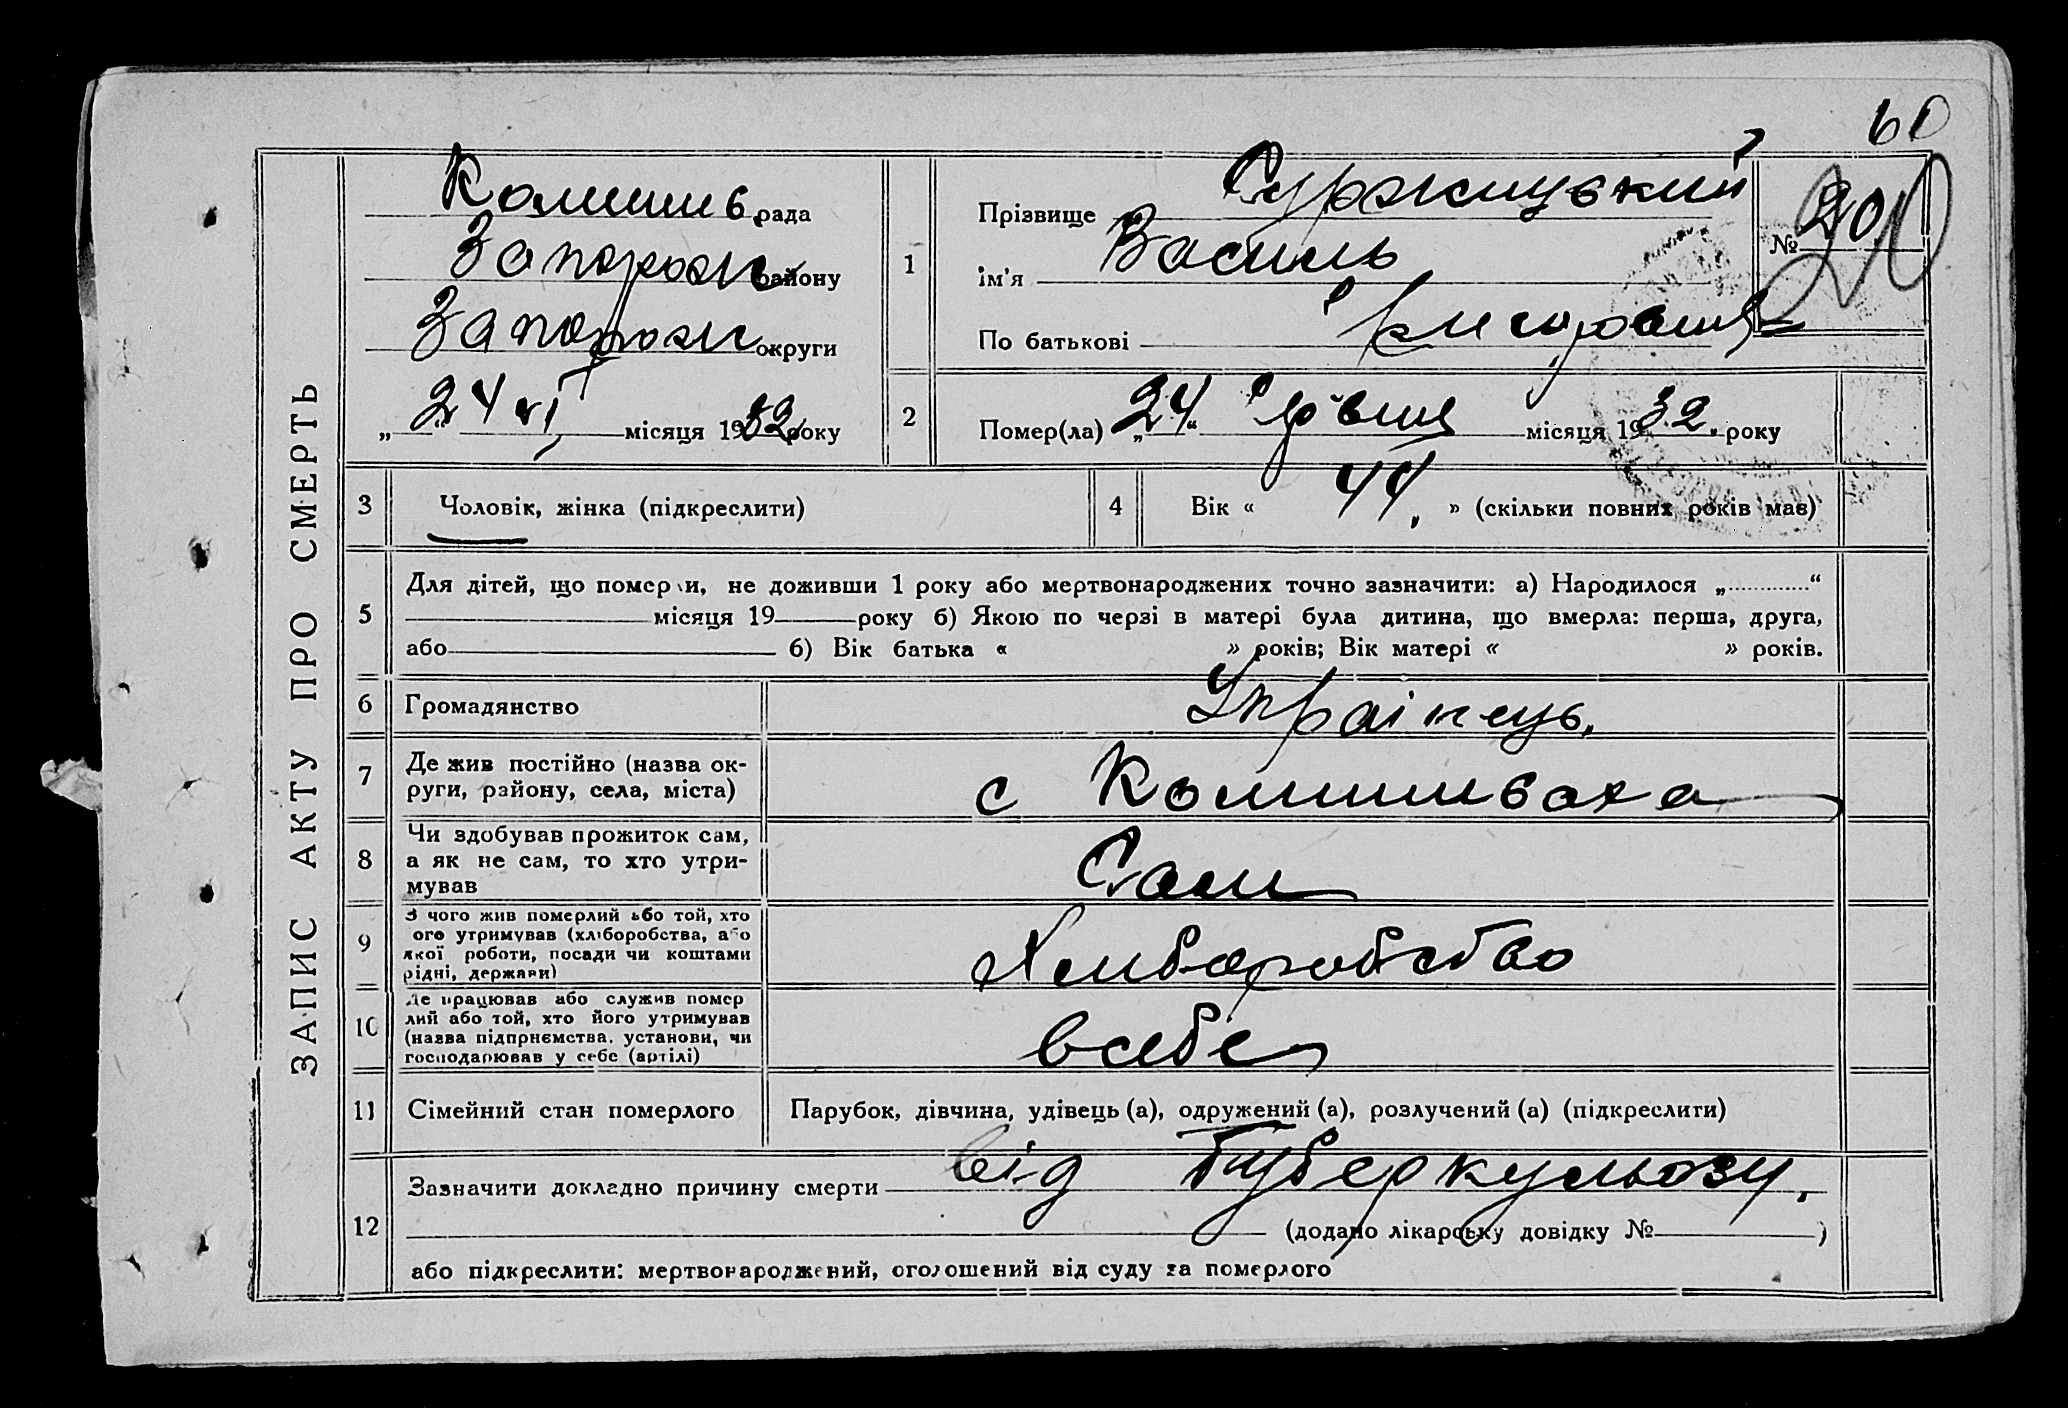 60
ЗАПИС АКТУ ПРО СМЕРТЬ
Комишув. рада
Запорож району
Запорож округи
„24" VI місяця 1932 року
1
Прізвище Суржицький
ім'я Василь
По батькові
№ 20
2
Помер(ла) „24" Червня місяця 1932. року
3 Чоловік, жінка (підкреслити)
4 Вік « 44, » (скільки повних років має)
5
Для дітей, що померли, не доживши 1 року або мертвонароджених точно зазначити: а) Народилося „ “
місяця 19 року б) Якою по черзі в матері була дитина, що вмерла: перша, друга,
або б) Вік батька « » років; Вік матері « » років.
6 Громадянство Українець.
7 Де жив постійно (назва ок-
руги, району, села, міста)
с Комишиваха
8 Чи здобував прожиток сам,
а як не сам, то хто утри-
мував
Сам
9 З чого жив померлий або той, хто
ого утримував (хліборобства, або
якої роботи, посади чи коштами
рідні, держави)
Хлиборобство
10 Де працював або служив помер
лий або той, хто його утримував
(назва підпрнємства, установи, чи
господарював у себе (артілі)
всебе
11 Сімейний стан померлого Парубок, дівчина, удівець (а), одружений (а), розлучений (а) (підкреслити)
12
Зазначити докладно причину смерти від Туберкульозу.
(додано лікарську довідку № )
або підкреслити: мертвонароджений, оголошений від суду за померлого